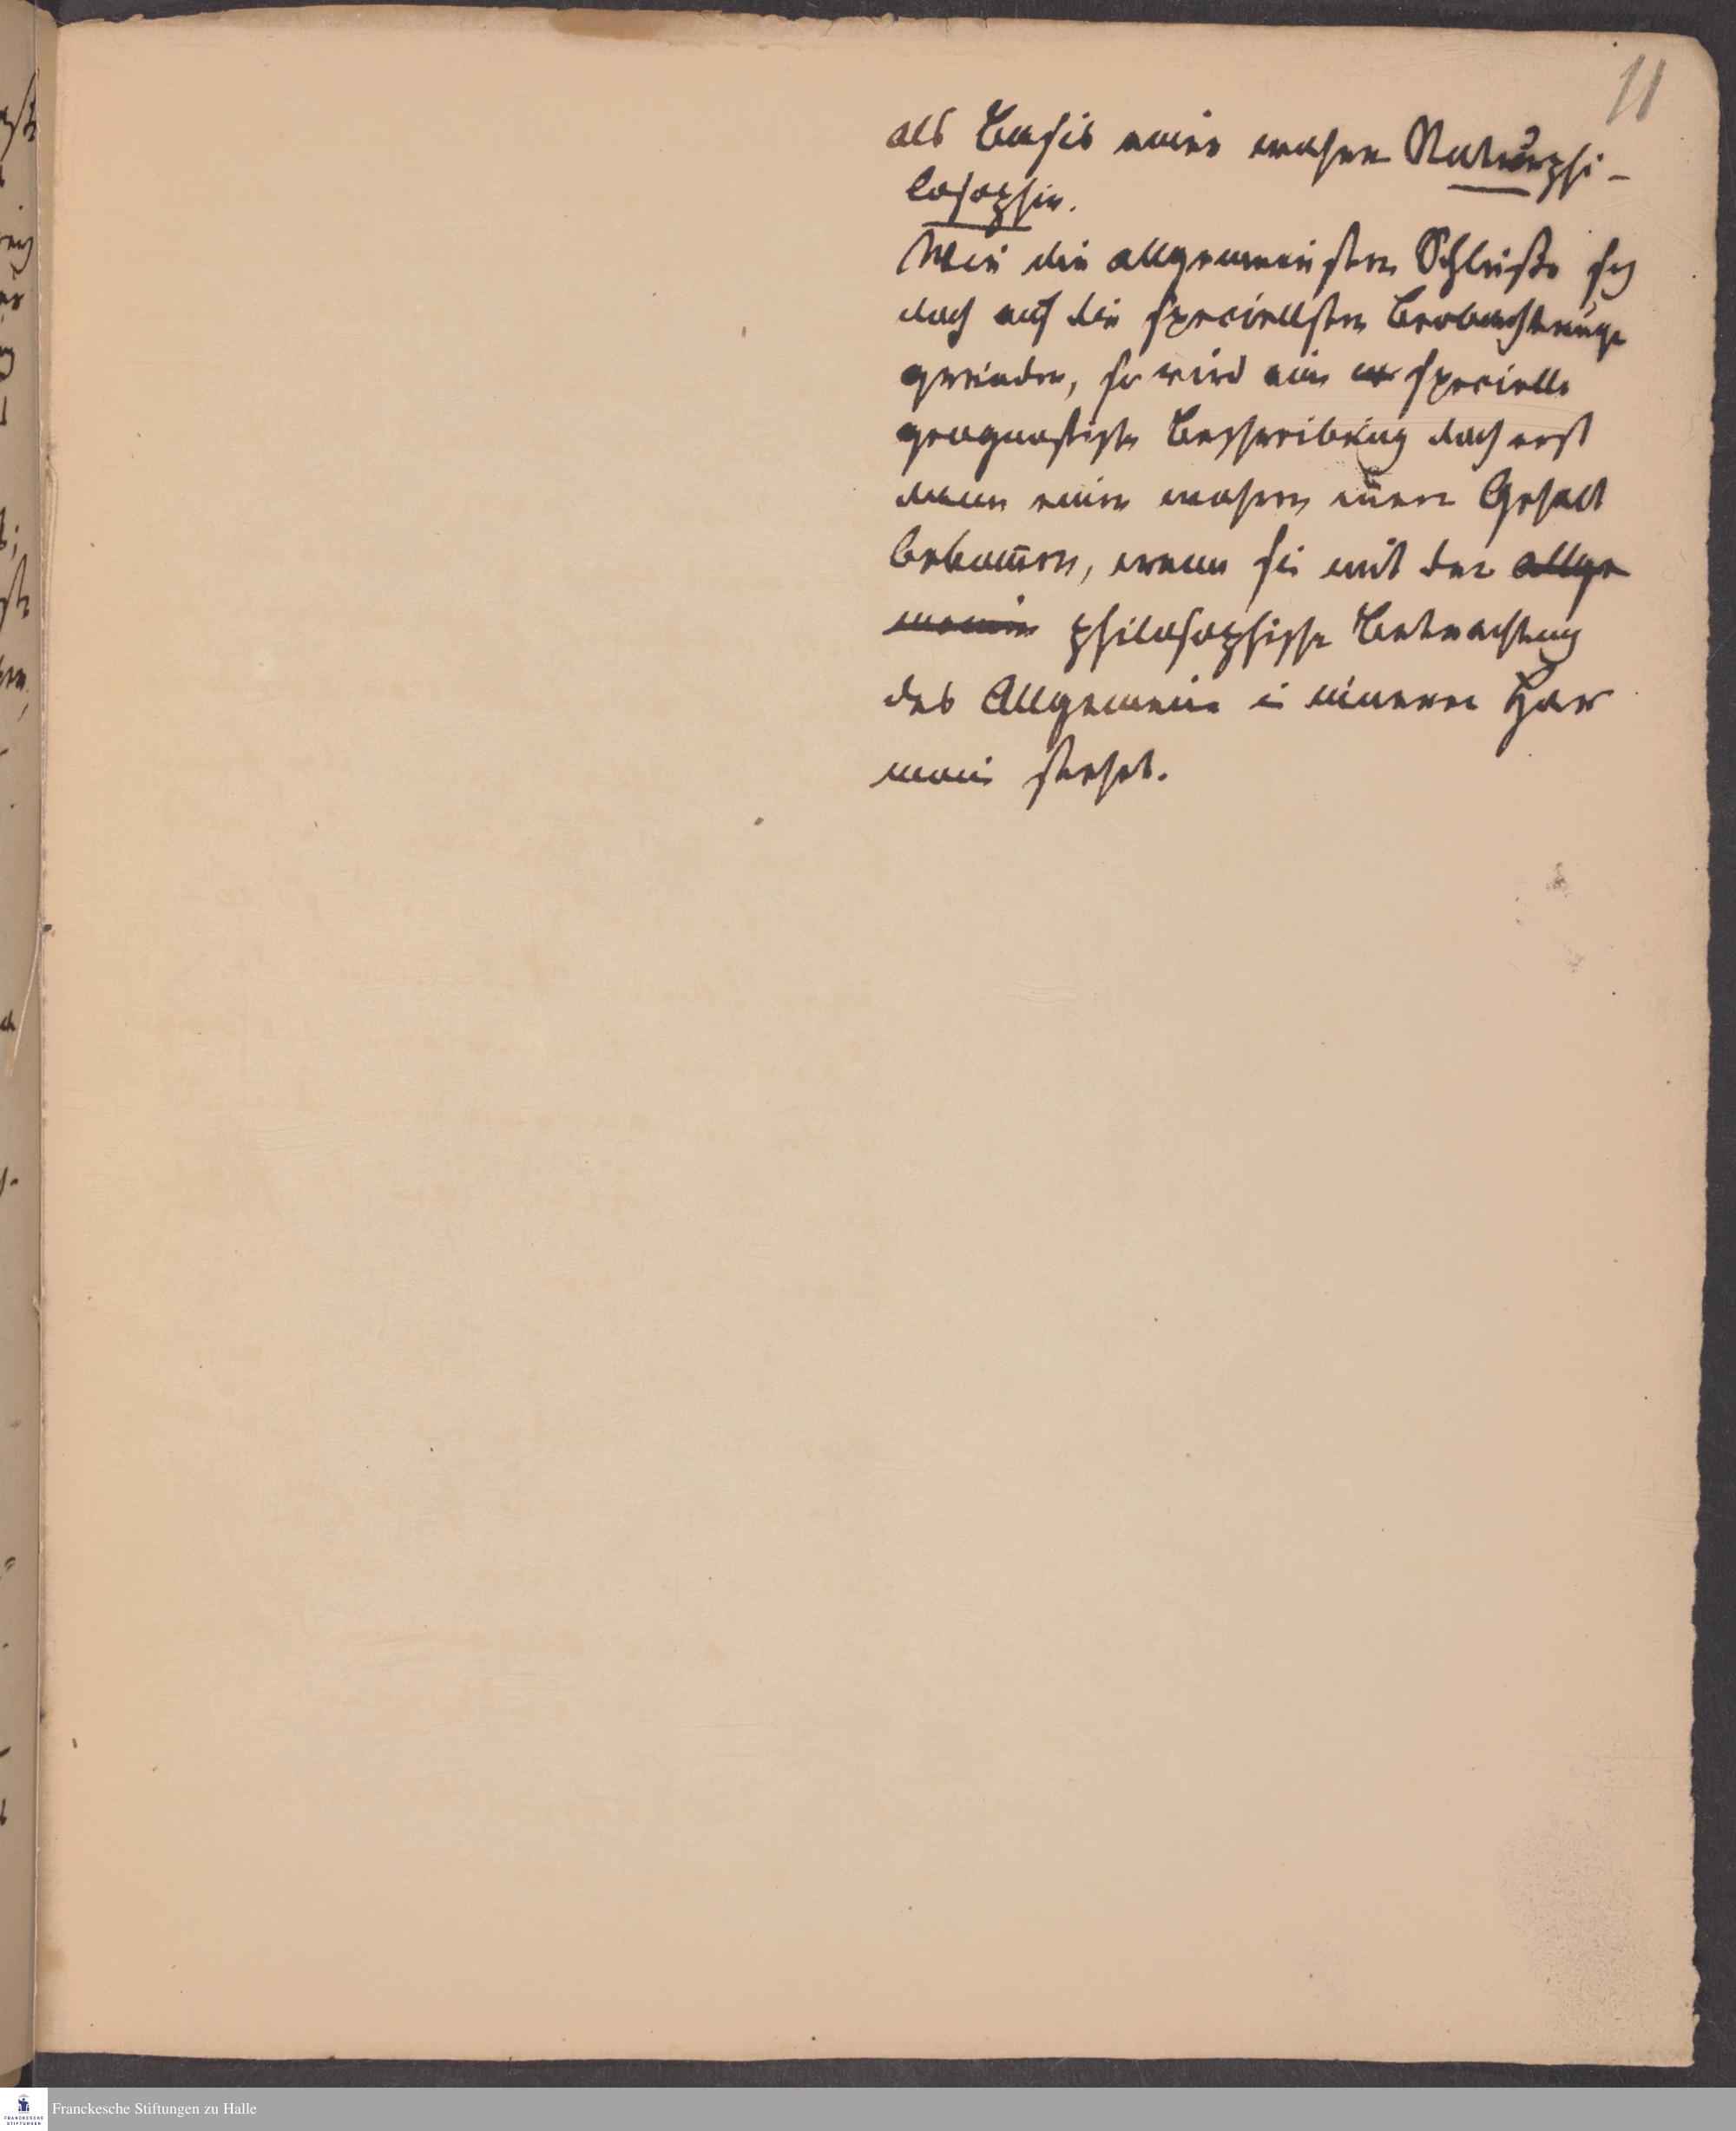 11
als Basis einer wahren Naturphi-
losophie.
Wie die allgemeinsten Schlüße sich
doch auf die speciellsten Beobachtunge
gründen, so wird eine specielle
geognostische Beschreibung doch erst
dann einen wahren innern Gehalt
bekom̅en, wenn sie mit der allge
meine philosophische Betrachtung
des Allgemeine in innerer Har
monie stehet.
Franckesche Stiftungen zu Halle
FRANCKESCHE
STIFTUNGEN